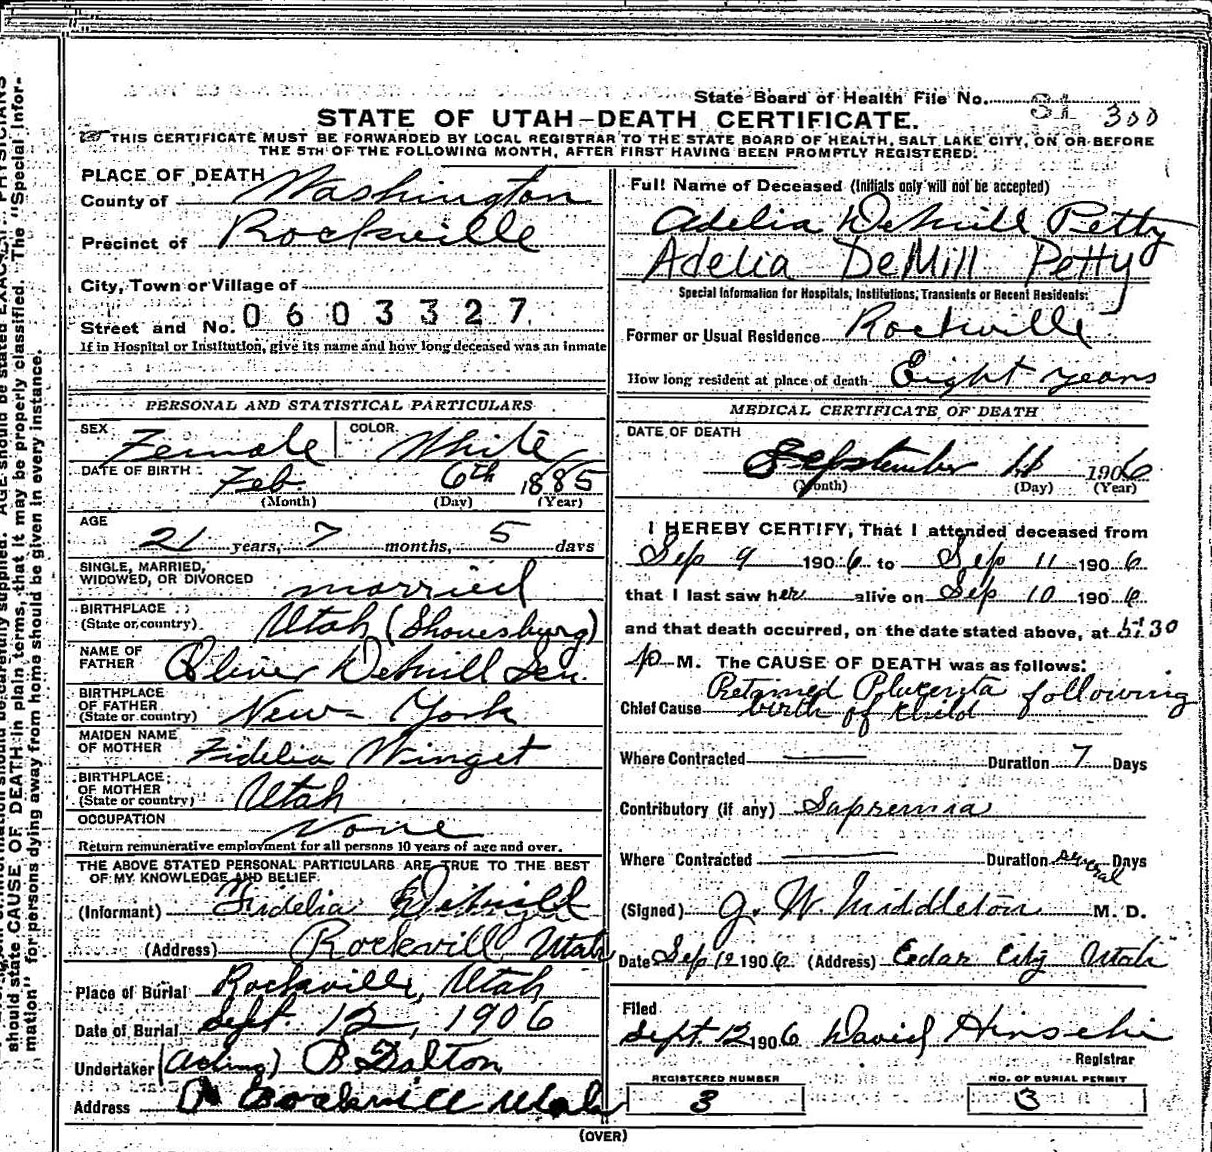 State Board of Health File No. 31 300
STATE OF UTAH—DEATH CERTIFICATE.
THIS CERTIFICATE MUST BE FORWARDED BY LOCAL REGISTRAR TO THE STATE BOARD OF HEALTH, SALT LAKE CITY, ON OR BEFORE
THE 5TH OF THE FOLLOWING MONTH, AFTER FIRST HAVING BEEN PROMPTLY REGISTERED.
PLACE OF DEATH
County of Washington
Precinct of Rockville
City, Town or Village of
Street and No. 0603327
If in Hospital or Institution, give its name and how long deceased was an inmate
PERSONAL AND STATISTICAL PARTICULARS
SEX Female COLOR White
DATE OF BIRTH Feb 6th 1885
(Month) (Day) (Year)
AGE
21 years, 7 months, 5 days
SINGLE, MARRIED,
WIDOWED, OR DIVORCED married
BIRTHPLACE
(State or country) Utah (Shonesburg)
NAME OF
FATHER Oliver DeMill Sen.
BIRTHPLACE
OF FATHER
(State or country) New York
MAIDEN NAME
OF MOTHER Fidelia Winget
BIRTHPLACE
OF MOTHER
(State or country) Utah
OCCUPATION None
Return remunerative employment for all persons 10 years of age and over.
THE ABOVE STATED PERSONAL PARTICULARS ARE TRUE TO THE BEST
OF MY KNOWLEDGE AND BELIEF.
(Informant) Fridelia DeMill
(Address) Rockvill Utah
Place of Burial Rockville, Utah
Date of Burial Sept. 12, 1906
Undertaker (Acting) B Dalton
Address Rockville Utah
Full Name of Deceased (Initials only will not be accepted)
Adelia DeMill Petty
Adelia DeMill Petty
Special Information for Hospitals, Institutions, Transients or Recent Residents:
Former or Usual Residence Rockville
How long resident at place of death Eight years
MEDICAL CERTIFICATE OF DEATH
DATE OF DEATH
September 11 1906
(Month) (Day) (Year)
I HEREBY CERTIFY, That I attended deceased from
Sep 9 1906 to Sep 11 1906
that I last saw her alive on Sep 10 1906
and that death occurred, on the date stated above, at 5:30
p M. The CAUSE OF DEATH was as follows:
Chief Cause Retained Placenta following
birth of child
Where Contracted Duration 7 Days
Contributory (if any) Sapremia
Where Contracted Duration several Days
(Signed) G. W. Middleton M. D.
Date Sep 12 1906 (Address) Cedar City Utah
Filed
Sept. 12 1906 David Hirschi
Registrar
REGISTERED NUMBER
3
NO. OF BURIAL PERMIT
3
(OVER)
should state CAUSE OF DEATH in plain terms, that it may be properly classified. The "Special Infor-
mation" for persons dying away from home should be given in every instance.